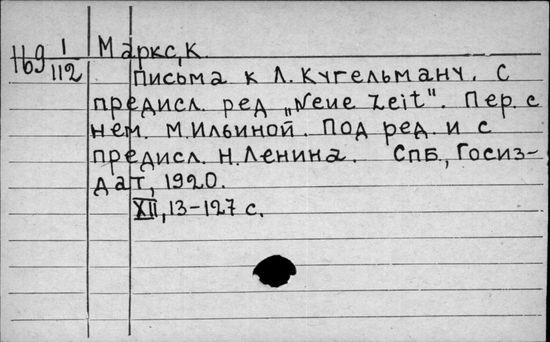 Маркс, К.
Н69 1/112
Письма к Л. Кугельману. С
предисл. ред „Neue Zeit". Пер. с
нем. М.Ильиной. Под ред. и с
предисл. Н.Ленина. СПБ., Госиз-
дат, 1920.
XII, 13-127 с.